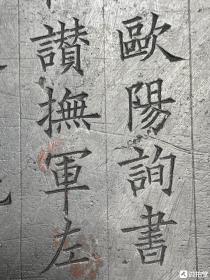 歐陽詢書
讃撫軍左